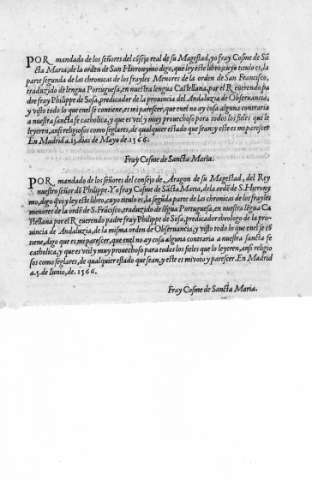 POR mandado de los señores del cõsejo real de su Magestad, yo fray Cosme de Sã
cta Maria, de la orden de San Hieronymo digo, que ley este libro cuyo titulo es, la
parte segunda de las chronicas de los frayles Menores de la orden de San Francisco,
traduzido de lengua Portuguesa, en nuestra lengua Castellana, por el R. euerendo pa
dre fray Philippe de Sosa, predicador de la prouincia del Andaluzia de Obseruancia,
y visto todo lo que enel se contiene, es mi parescer, que enel no ay cosa alguna contraria
a nuestra sancta fe catholica, y que es vtil y muy prouechoso para todos los fieles que le
leyeren, ansi religiosos como seglares, de qualquier estado que sean, y este es mi parescer.
En Madrid a.15. dias de Mayo de 1566.
Fray Cosme de Sancta Maria.
POR mandado de los señores del consejo de Aragon de su Magestad, del Rey
nuestro señor dõ Philippe. Yo fray Cosme de Sãcta Maria, dela ordẽ de S. Hierony
mo, digo q̃ vi y ley este libro, cuyo titulo es, la segũda parte de las chronicas de los frayles
menores de la ordẽ de S. Frãcisco, traduzido de lẽgua Portuguesa, en nuestra lẽgua Ca
stellana por el R euerendo padre fray Philippe de Sosa, predicador theologo de la prouin
cia de Andaluzia, de la misma orden de Obseruancia, y visto todo lo que enel se cõ
tiene, digo que es mi parescer, que enel no ay cosa alguna contraria a nuestra sancta fe
catholica, y que es vtil y muy prouechoso para todos los fieles que lo leyeren, ansi religio
sos como seglares, de qualquier estado que sean, y este es mi voto y parescer. En Madrid
a.5. de Iunio, de .1566.
Fray Cosme de Sancta Maria.